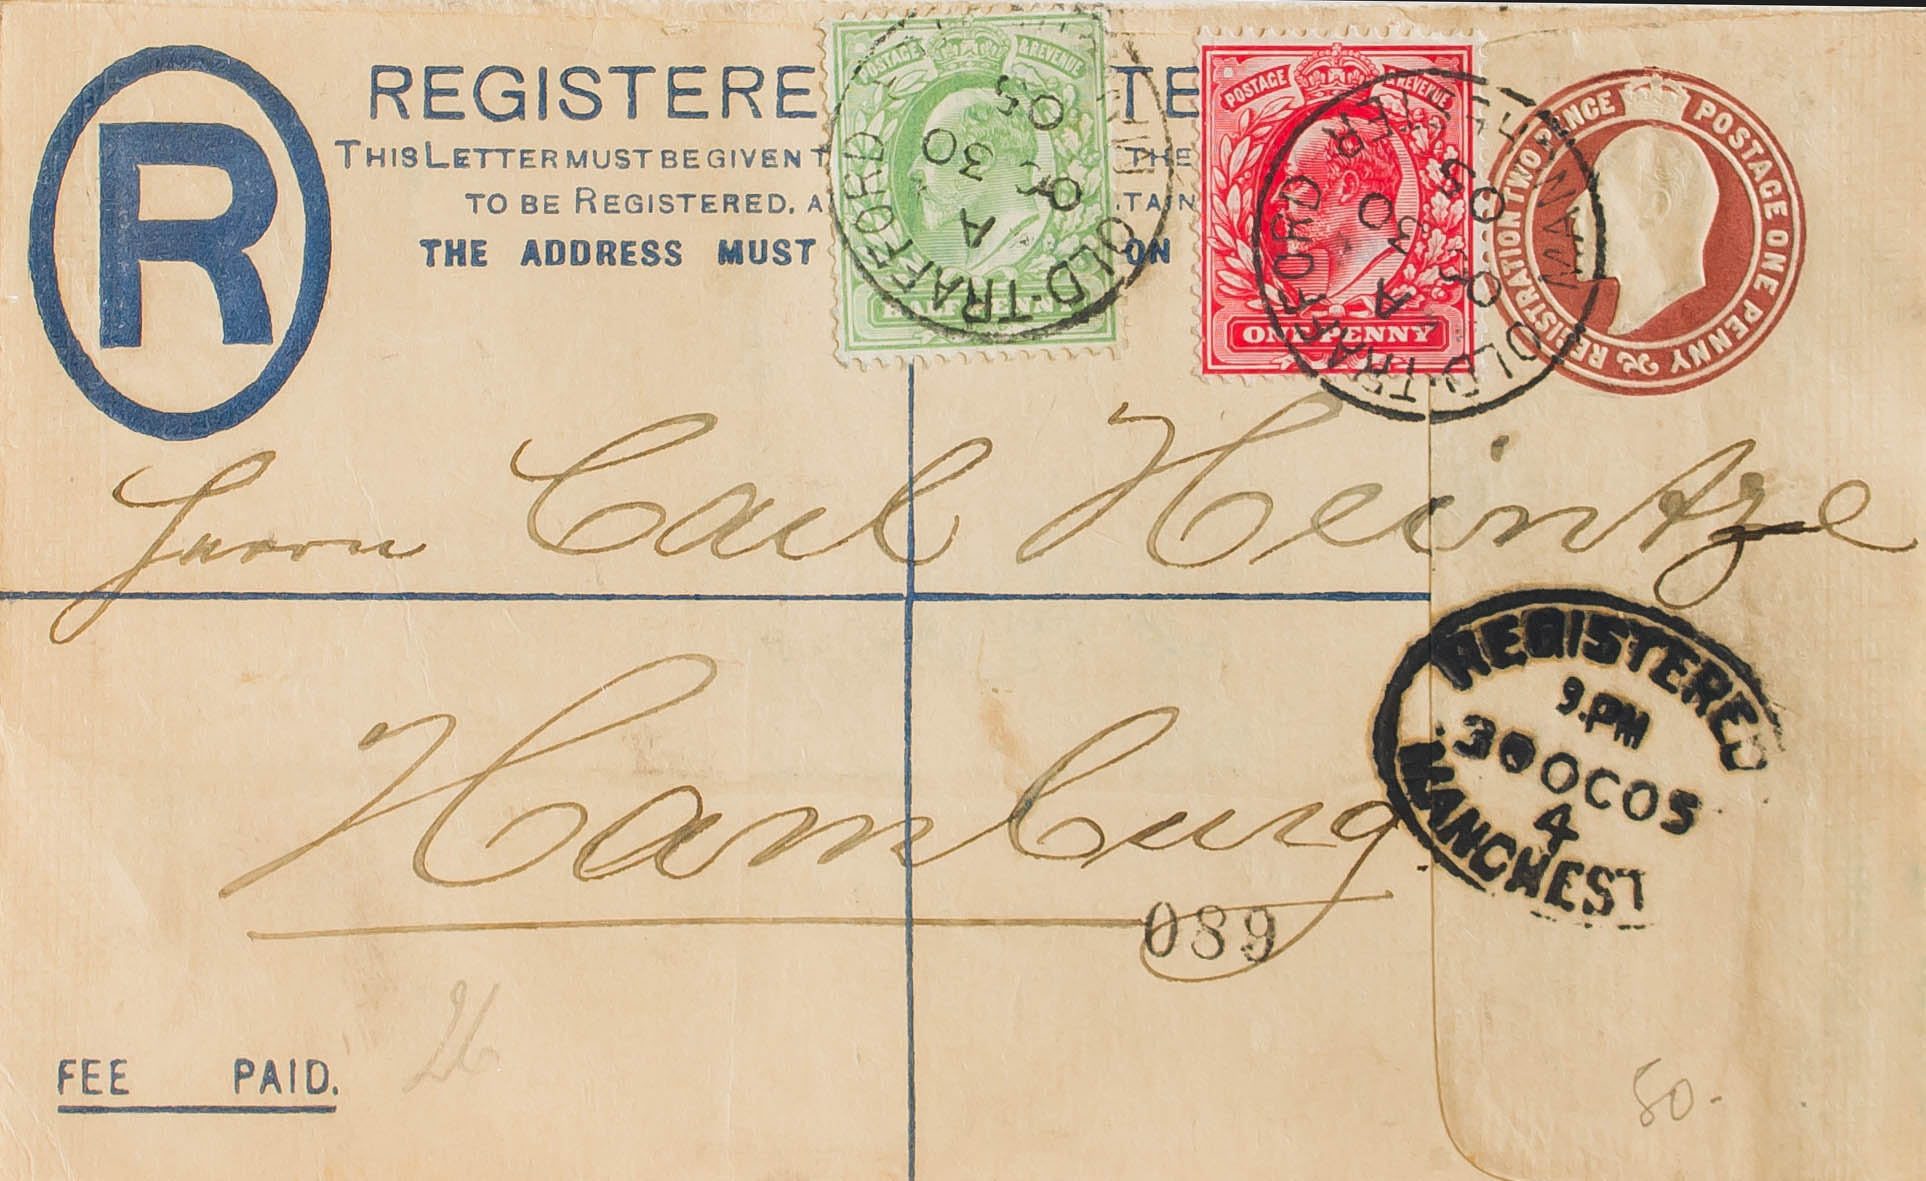 R
REGISTERE TE
THIS LETTER MUST BE GIVEN T THE
TO BE REGISTERED, A TAIN
THE ADDRESS MUST ON
POSTAGE & REVENUE
HALFPENNY
OLD TRAFFORD
A
OC 30
05
POSTAGE & REVENUE
ONE PENNY
OLD TRAFFORD MANCHESTER
A
OC 30
05
REGISTRATION TWO PENCE POSTAGE ONE PENNY &
Herrn Carl Heintze
Hamburg
REGISTERED
9.PM
30 OC 05
4
MANCHEST
089
FEE PAID.
26
50-